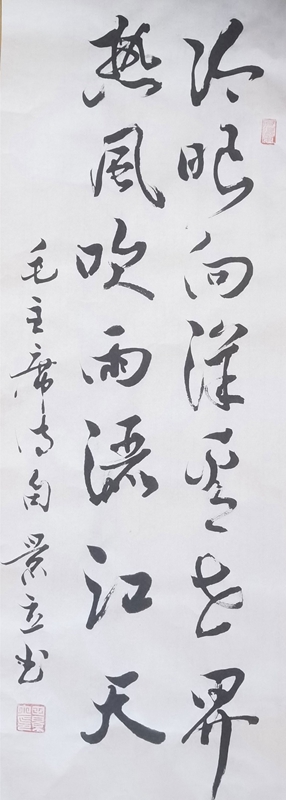 冷眼向洋看世界
热風吹雨洒江天
毛主席诗句 景立书